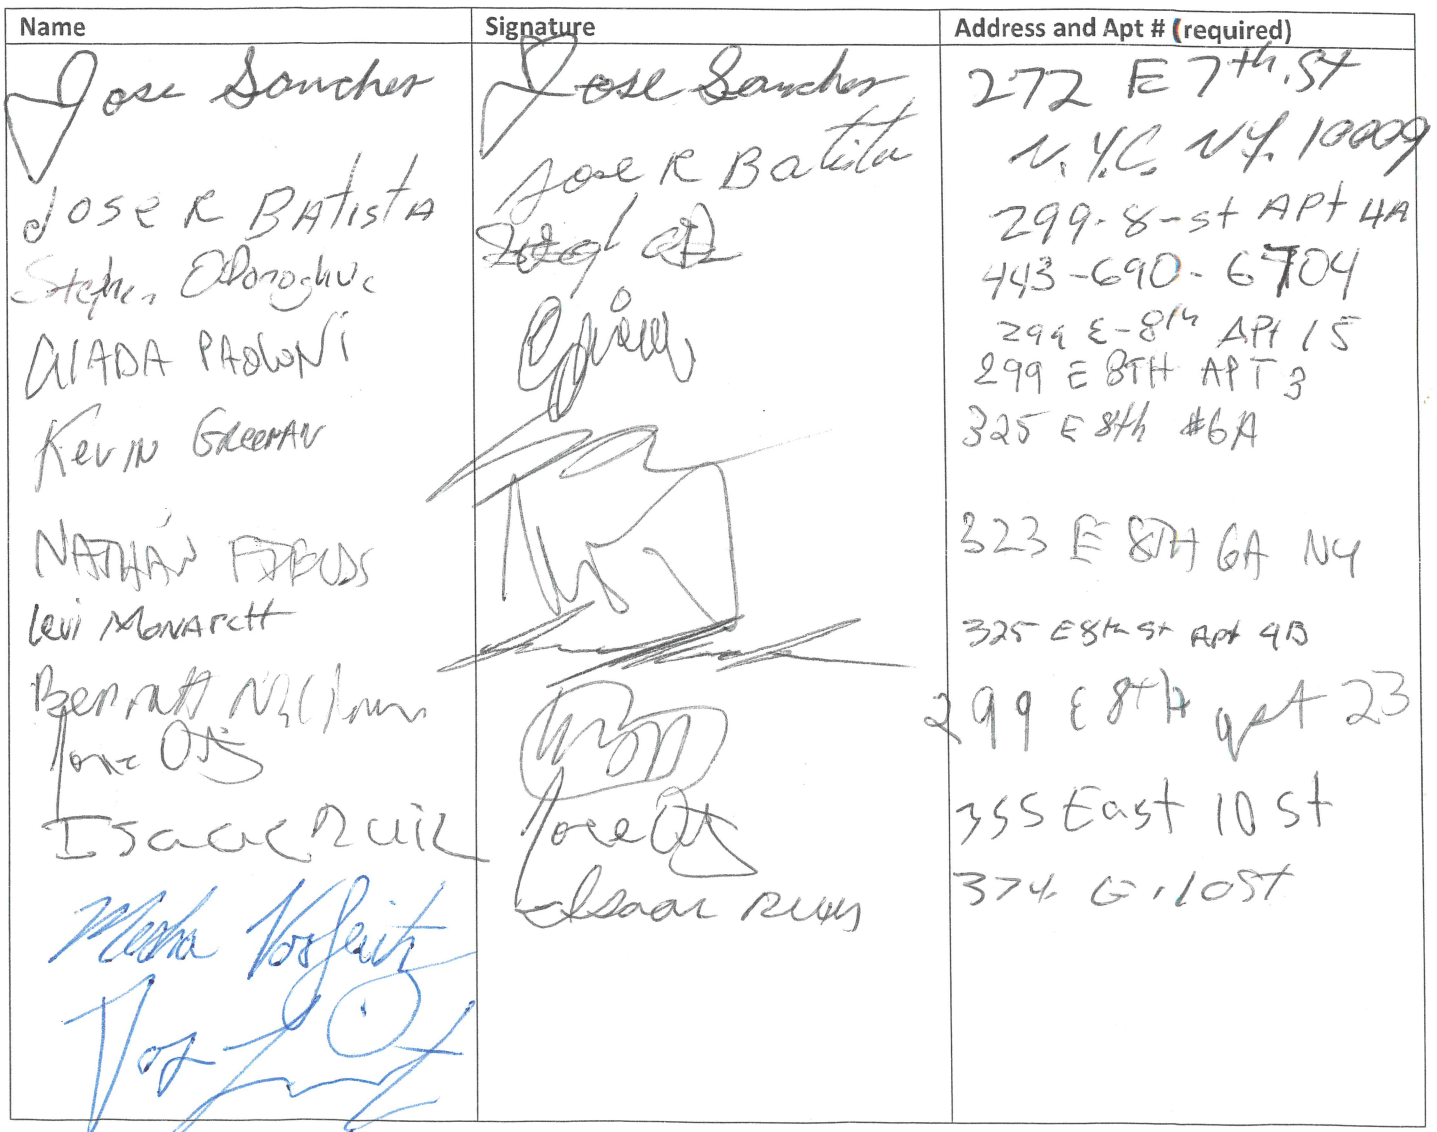 Name Signature Address and Apt # (required)
Jose Sanchez Jose Sanchez 272 E 7th. St
N.Y.C. N.Y. 10009
Jose R Batista Jose R Batista 299-8-st APt 4A
Stephen ODonoghue 443-690-6704
299 E-8th APt 15
GIADA PAOLONI 299 E 8TH APT 3
KevIN GREEMAN 325 E 8th #6A
NATHAN FIELDS 323 E 8TH 6A NY
Levi MONARCH 325 E8th St Apt 4B
Bennett 299 E 8th apt 23
Jose Jose 355 East 10 St
Isaac Ruiz Isaac Ruiz 374 E. 10St